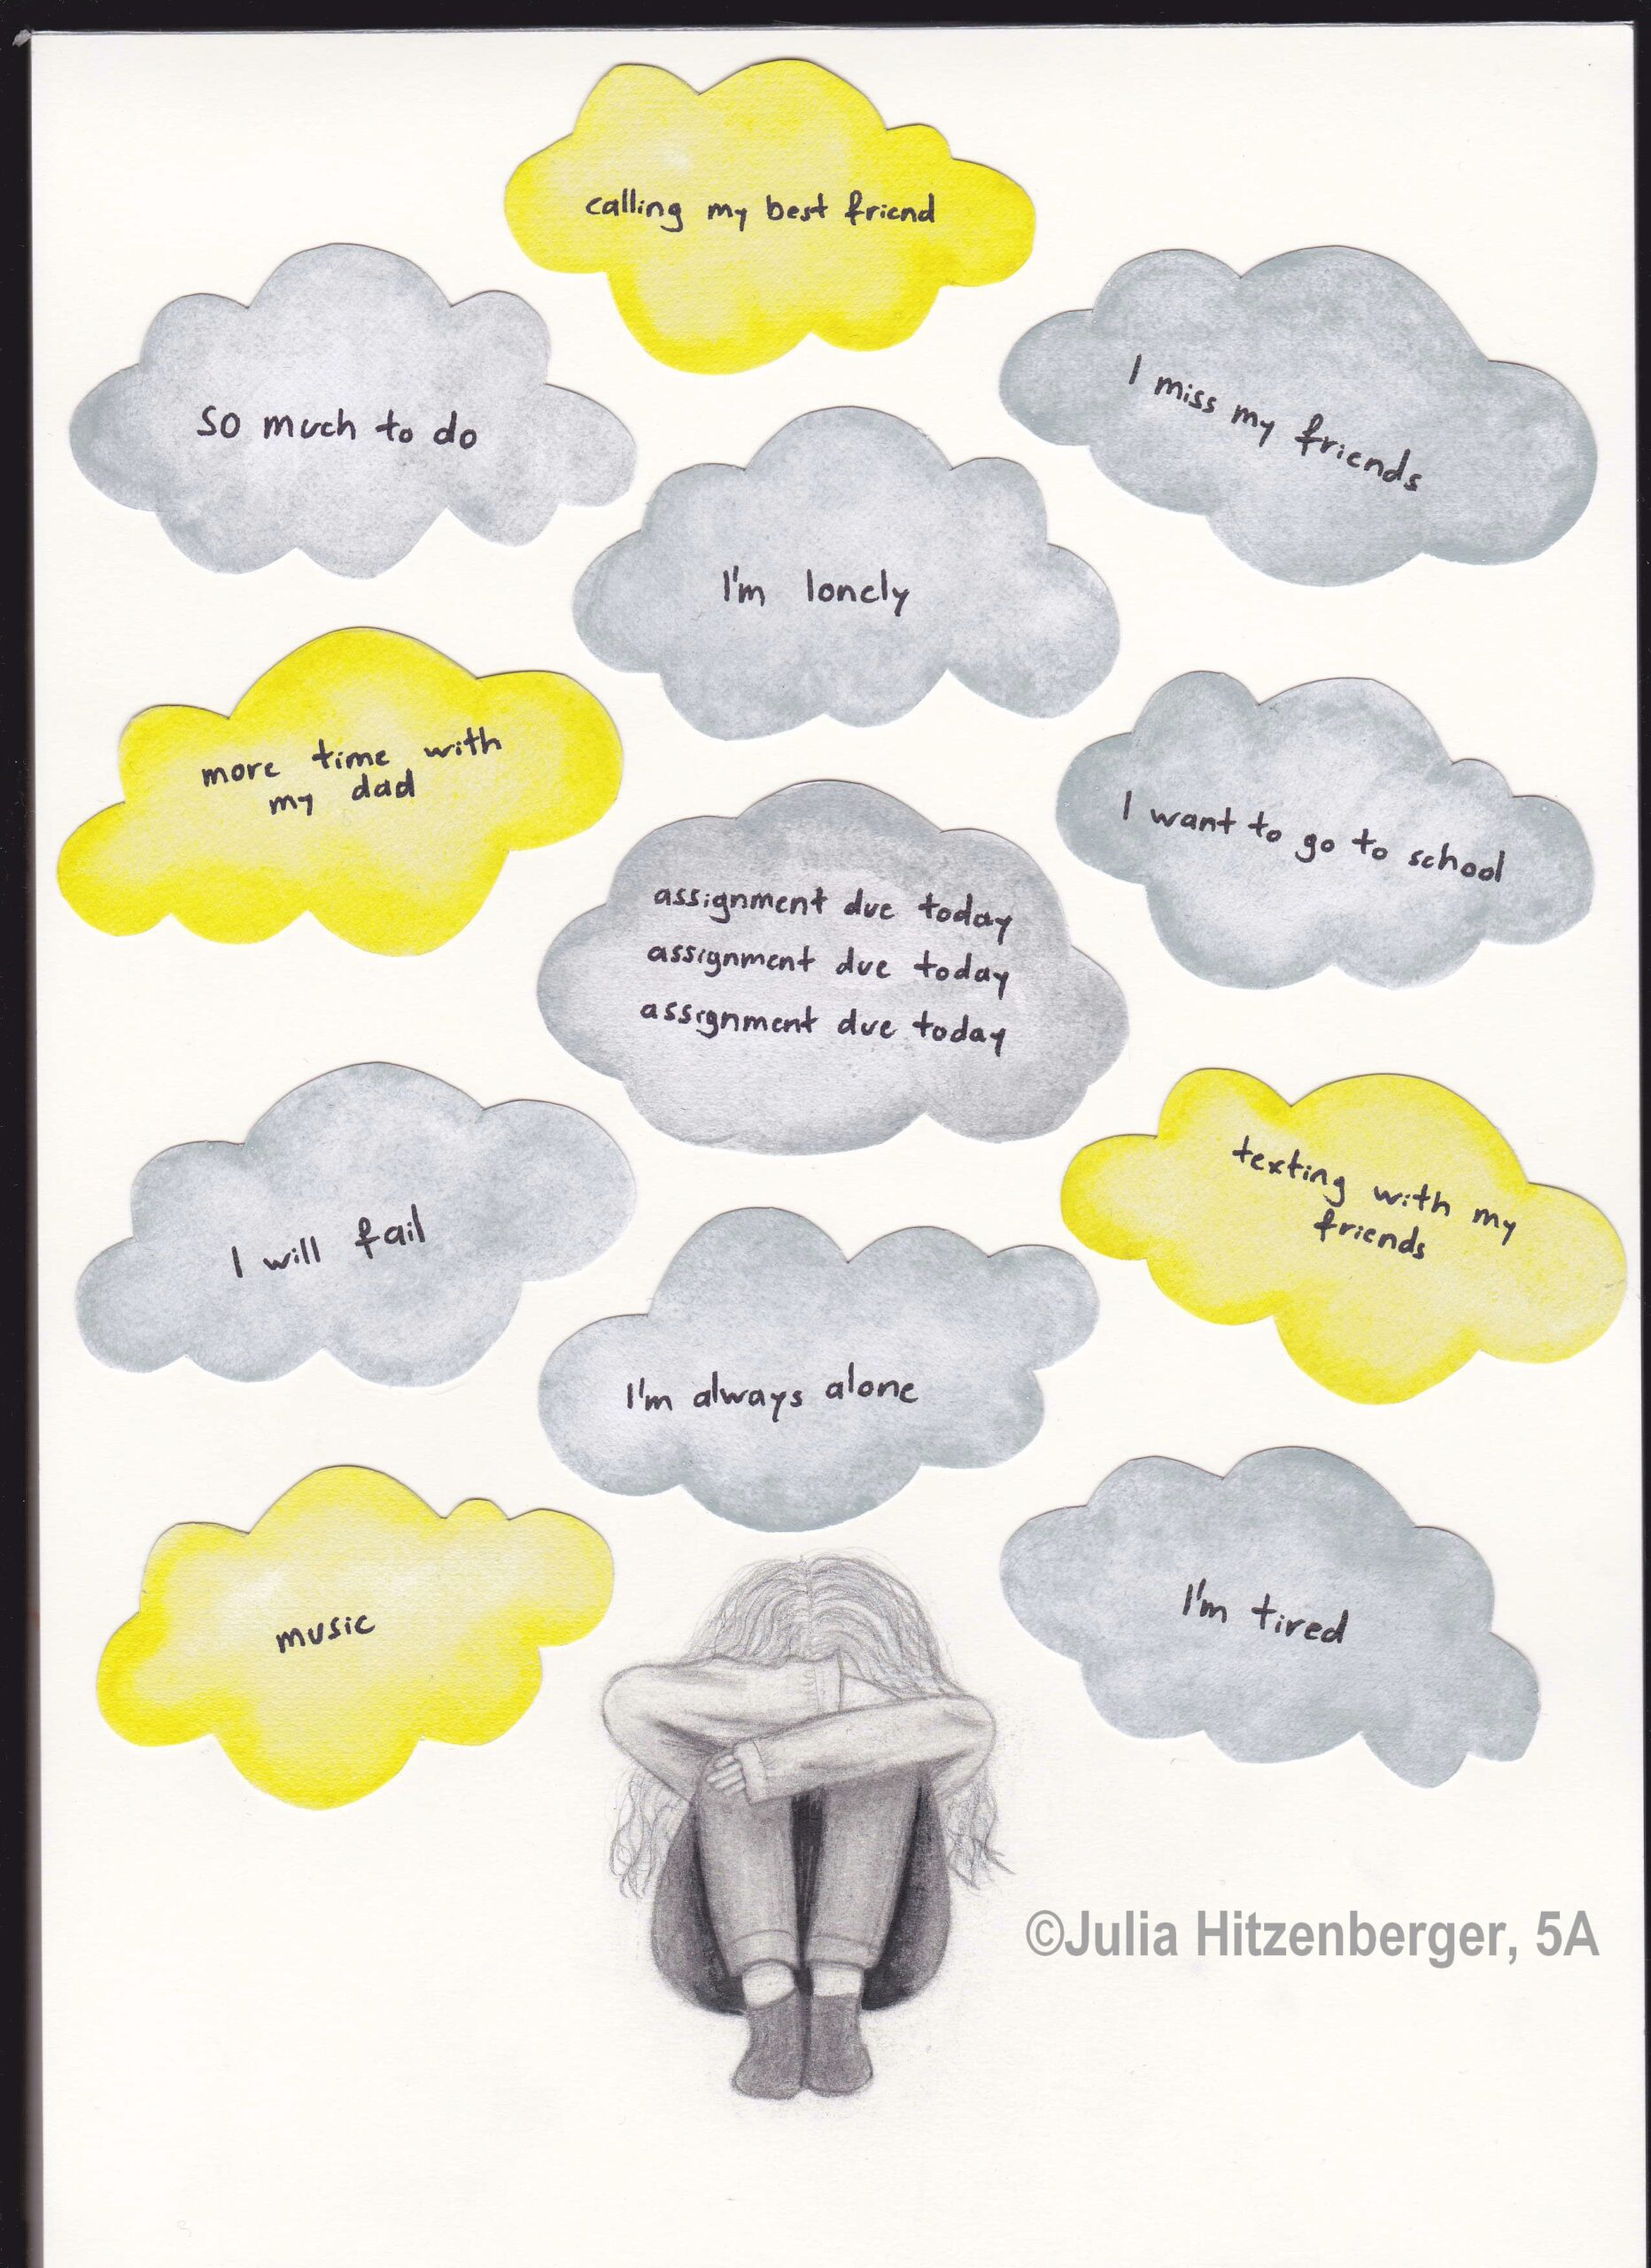 calling my best friend
so much to do
I miss my friends
I'm lonely
more time with
my dad
I want to go to school
assignment due today
assignment due today
assignment due today
I will fail
texting with my
friends
I'm always alone
music
I'm tired
©Julia Hitzenberger, 5A